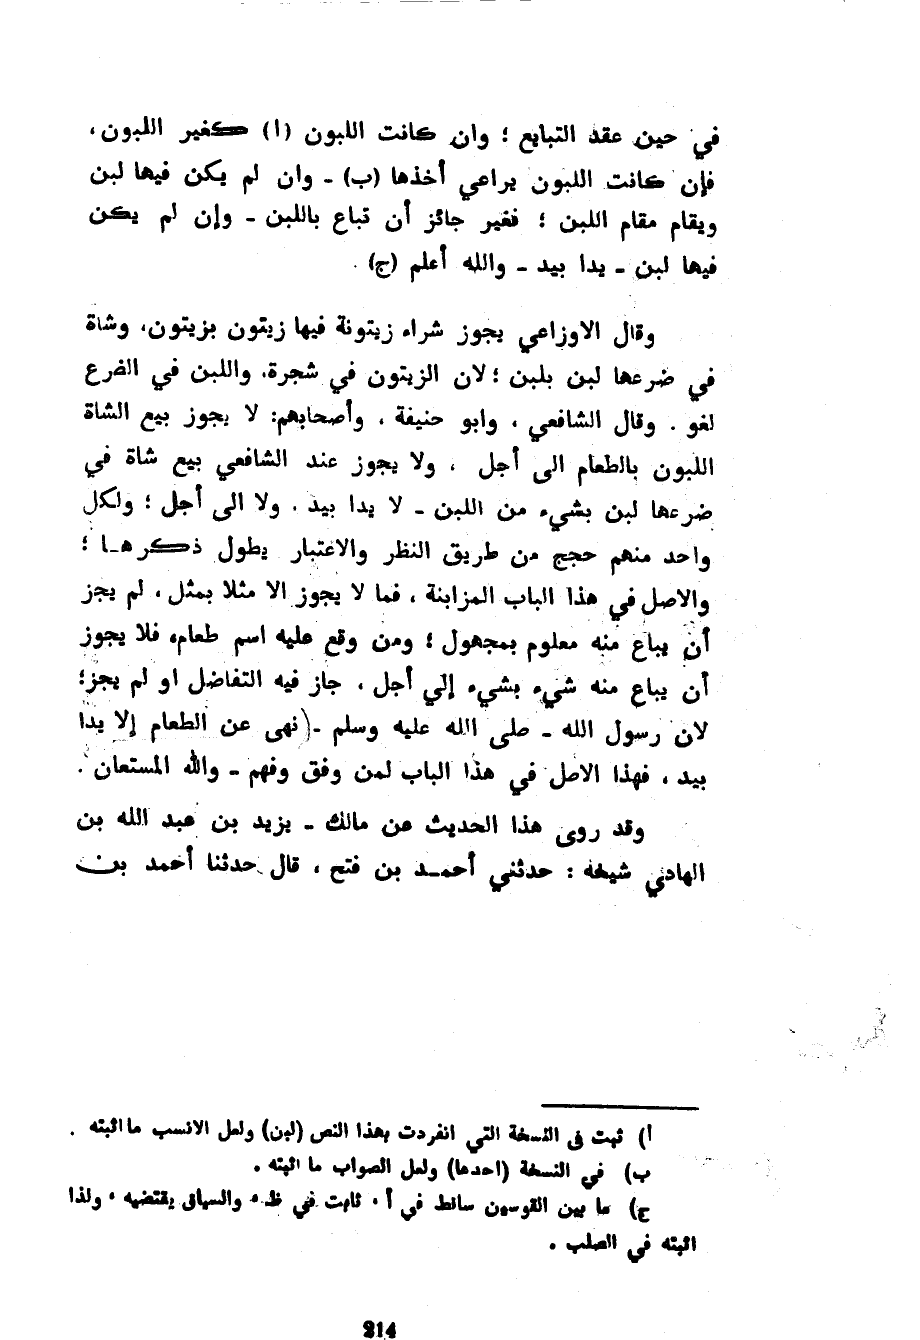 في حين عقد التبايع ؛ وان كانت اللبون (ا) كغير اللبون،
فإن كانت اللبون يراعي أخذها (ب) ـ وان لم يكن فيها لبن
ويقام مقام اللبن ؛ فغير جائز أن تباع باللبن ـ وإن لم يكن
فيها لبن ـ يدا بيد ـ والله أعلم (ج) .
وقال الاوزاعي يجوز شراء زيتونة فيها زيتون بزيتون، وشاة
في ضرعها لبن بلبن ؛ لان الزيتون في شجرة، واللبن في الضرع
لغو . وقال الشافعي ، وابو حنيفة ، وأصحابهم: لا يجوز بيع الشاة
اللبون بالطعام الى أجل ، ولا يجوز عند الشافعي بيع شاة في
ضرعها لبن بشيء من اللبن ـ لا يدا بيد ، ولا الى أجل ؛ ولكل
واحد منهم حجج من طريق النظر والاعتبار يطول ذكرهـا ؛
والاصل في هذا الباب المزابنة ، فما لا يجوز الا مثلا بمثل ، لم يجز
أن يباع منه معلوم بمجهول ؛ ومن وقع عليه اسم طعام، فلا يجوز
أن يباع منه شيء بشيء إلي أجل ، جاز فيه التفاضل او لم يجز؛
لان رسول الله ـ صلى الله عليه وسلم ـ (نهى عن الطعام إلا يدا
بيد ، فهذا الاصل في هذا الباب لمن وفق وفهم ـ والله المستعان .
وقد روى هذا الحديث عن مالك ـ يزيد بن عبد الله بن
الهادي شيخه : حدثني أحمـد بن فتح ، قال حدثنا أحمد بن
أ) ثبت فى النسخة التي انفردت بهذا النص (لبن) ولعل الانسب ما اثبته .
ب) في النسخة (احدها) ولعل الصواب ما اثبته .
ج) ما بين القوسين ساقط في أ ، ثابت في ظ، والسياق يقتضيه ، ولذا
اثبته في الصلب .
214